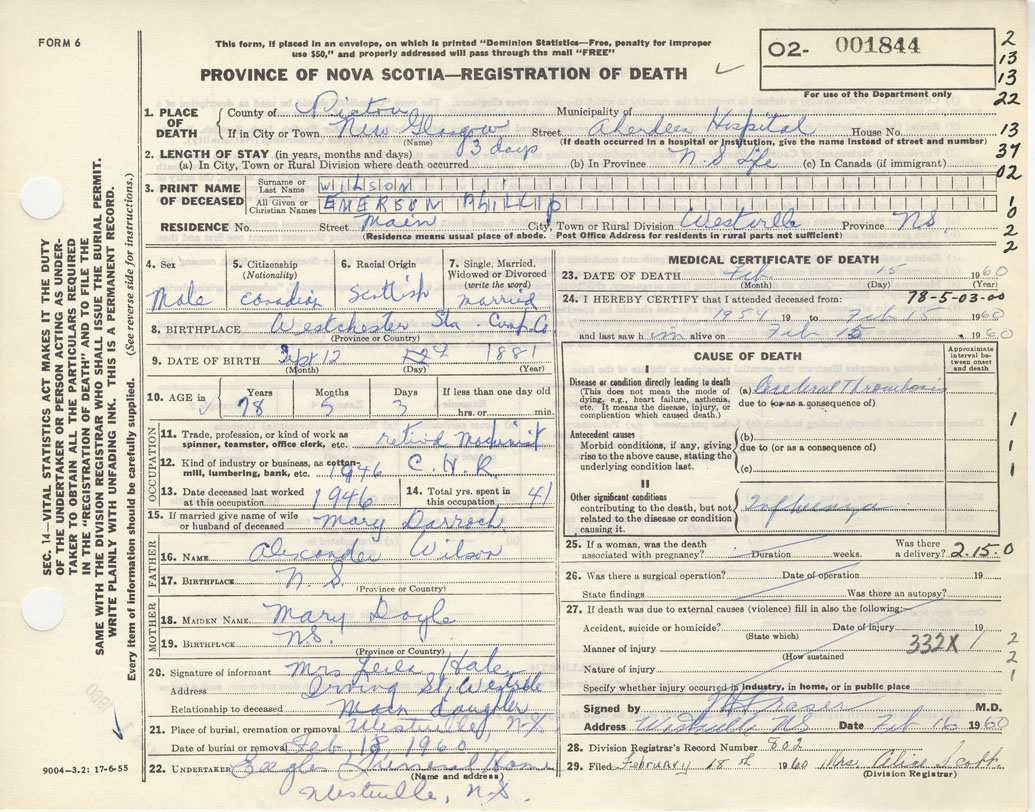 FORM 6
This form, if placed in an envelope, on which is printed "Dominion Statistics—Free, penalty for improper
use $50," and properly addressed will pass through the mail "FREE"
PROVINCE OF NOVA SCOTIA—REGISTRATION OF DEATH
O2- 001844
For use of the Department only
2
13
13
22
13
37
02
1
0
2
2
SEC. 14—VITAL STATISTICS ACT MAKES IT THE DUTY
OF THE UNDERTAKER OR PERSON ACTING AS UNDER-
TAKER TO OBTAIN ALL THE PARTICULARS REQUIRED
IN THE "REGISTRATION OF DEATH" AND TO FILE THE
SAME WITH THE DIVISION REGISTRAR WHO SHALL ISSUE THE BURIAL PERMIT.
WRITE PLAINLY WITH UNFADING INK. THIS IS A PERMANENT RECORD.
Every item of information should be carefully supplied. (See reverse side for instructions.)
1. PLACE OF DEATH County of Pictou Municipality of
If in City or Town New Glasgow Street Aberdeen Hospital House No.
(Name) (If death occurred in a hospital or institution, give the name instead of street and number)
2. LENGTH OF STAY (in years, months and days) 3 days
(a) In City, Town or Rural Division where death occurred (b) In Province N.S. Life (c) In Canada (if immigrant)
3. PRINT NAME OF DECEASED Surname or Last Name WILSON
All Given or Christian Names EMERSON PHILLIP
RESIDENCE No. Street Main City, Town or Rural Division Westville Province N.S.
(Residence means usual place of abode. Post Office Address for residents in rural parts not sufficient)
4. Sex Male 5. Citizenship (Nationality) Canadian 6. Racial Origin Scottish 7. Single, Married, Widowed or Divorced (write the word) married
8. BIRTHPLACE Westchester Sta. Cumb. Co.
(Province or Country)
9. DATE OF BIRTH Sept 12 1881
(Month) (Day) (Year)
10. AGE in Years 78 Months 5 Days 3 If less than one day old hrs. or min.
OCCUPATION
11. Trade, profession, or kind of work as spinner, teamster, office clerk, etc. retired Machinist
12. Kind of industry or business, as cotton mill, lumbering, bank, etc. 1946 C.N.R
13. Date deceased last worked at this occupation 1946 14. Total yrs. spent in this occupation 41
15. If married give name of wife or husband of deceased Mary Darroch
FATHER
16. NAME Alexander Wilson
17. BIRTHPLACE N.S
(Province or Country)
MOTHER
18. MAIDEN NAME Mary Doyle
19. BIRTHPLACE N.S.
(Province or Country)
20. Signature of informant Mrs Leila Hale
Address Irving St, Westville
Relationship to deceased daughter
21. Place of burial, cremation or removal Westville, N.S
Date of burial or removal Feb 18 1960
22. UNDERTAKER Eagles Funeral Home
(Name and address)
Westville, N.S.
9004—3.2: 17-6-55
MEDICAL CERTIFICATE OF DEATH
23. DATE OF DEATH Feb 15 1960
(Month) (Day) (Year)
24. I HEREBY CERTIFY that I attended deceased from: 78-5-03-00
1954 19 to Feb 15 1960
and last saw him alive on Feb 15, 1960
CAUSE OF DEATH
Approximate interval between onset and death
I
Disease or condition directly leading to death (a) Cerebral Thrombosis
(This does not mean the mode of dying, e.g., heart failure, asthenia, etc. It means the disease, injury, or complication which caused death.) due to (or as a consequence of)
Antecedent causes (b)
Morbid conditions, if any, giving rise to the above cause, stating the underlying condition last. due to (or as a consequence of)
(c)
II
Other significant conditions contributing to the death, but not related to the disease or condition causing it. Influenza
1
1
1
25. If a woman, was the death associated with pregnancy? Duration weeks. Was there a delivery? 2.15.0
26. Was there a surgical operation? Date of operation 19
State findings Was there an autopsy?
27. If death was due to external causes (violence) fill in also the following:
Accident, suicide or homicide? Date of injury 19
(State which)
Manner of injury 332X
(How sustained
Nature of injury
2
2
1
Specify whether injury occurred in industry, in home, or in public place
Signed by Fraser M.D.
Address Westville NS Date Feb 16 1960
28. Division Registrar's Record Number 802
29. Filed February 18th 1960 Mrs. Alice Scott
(Division Registrar)